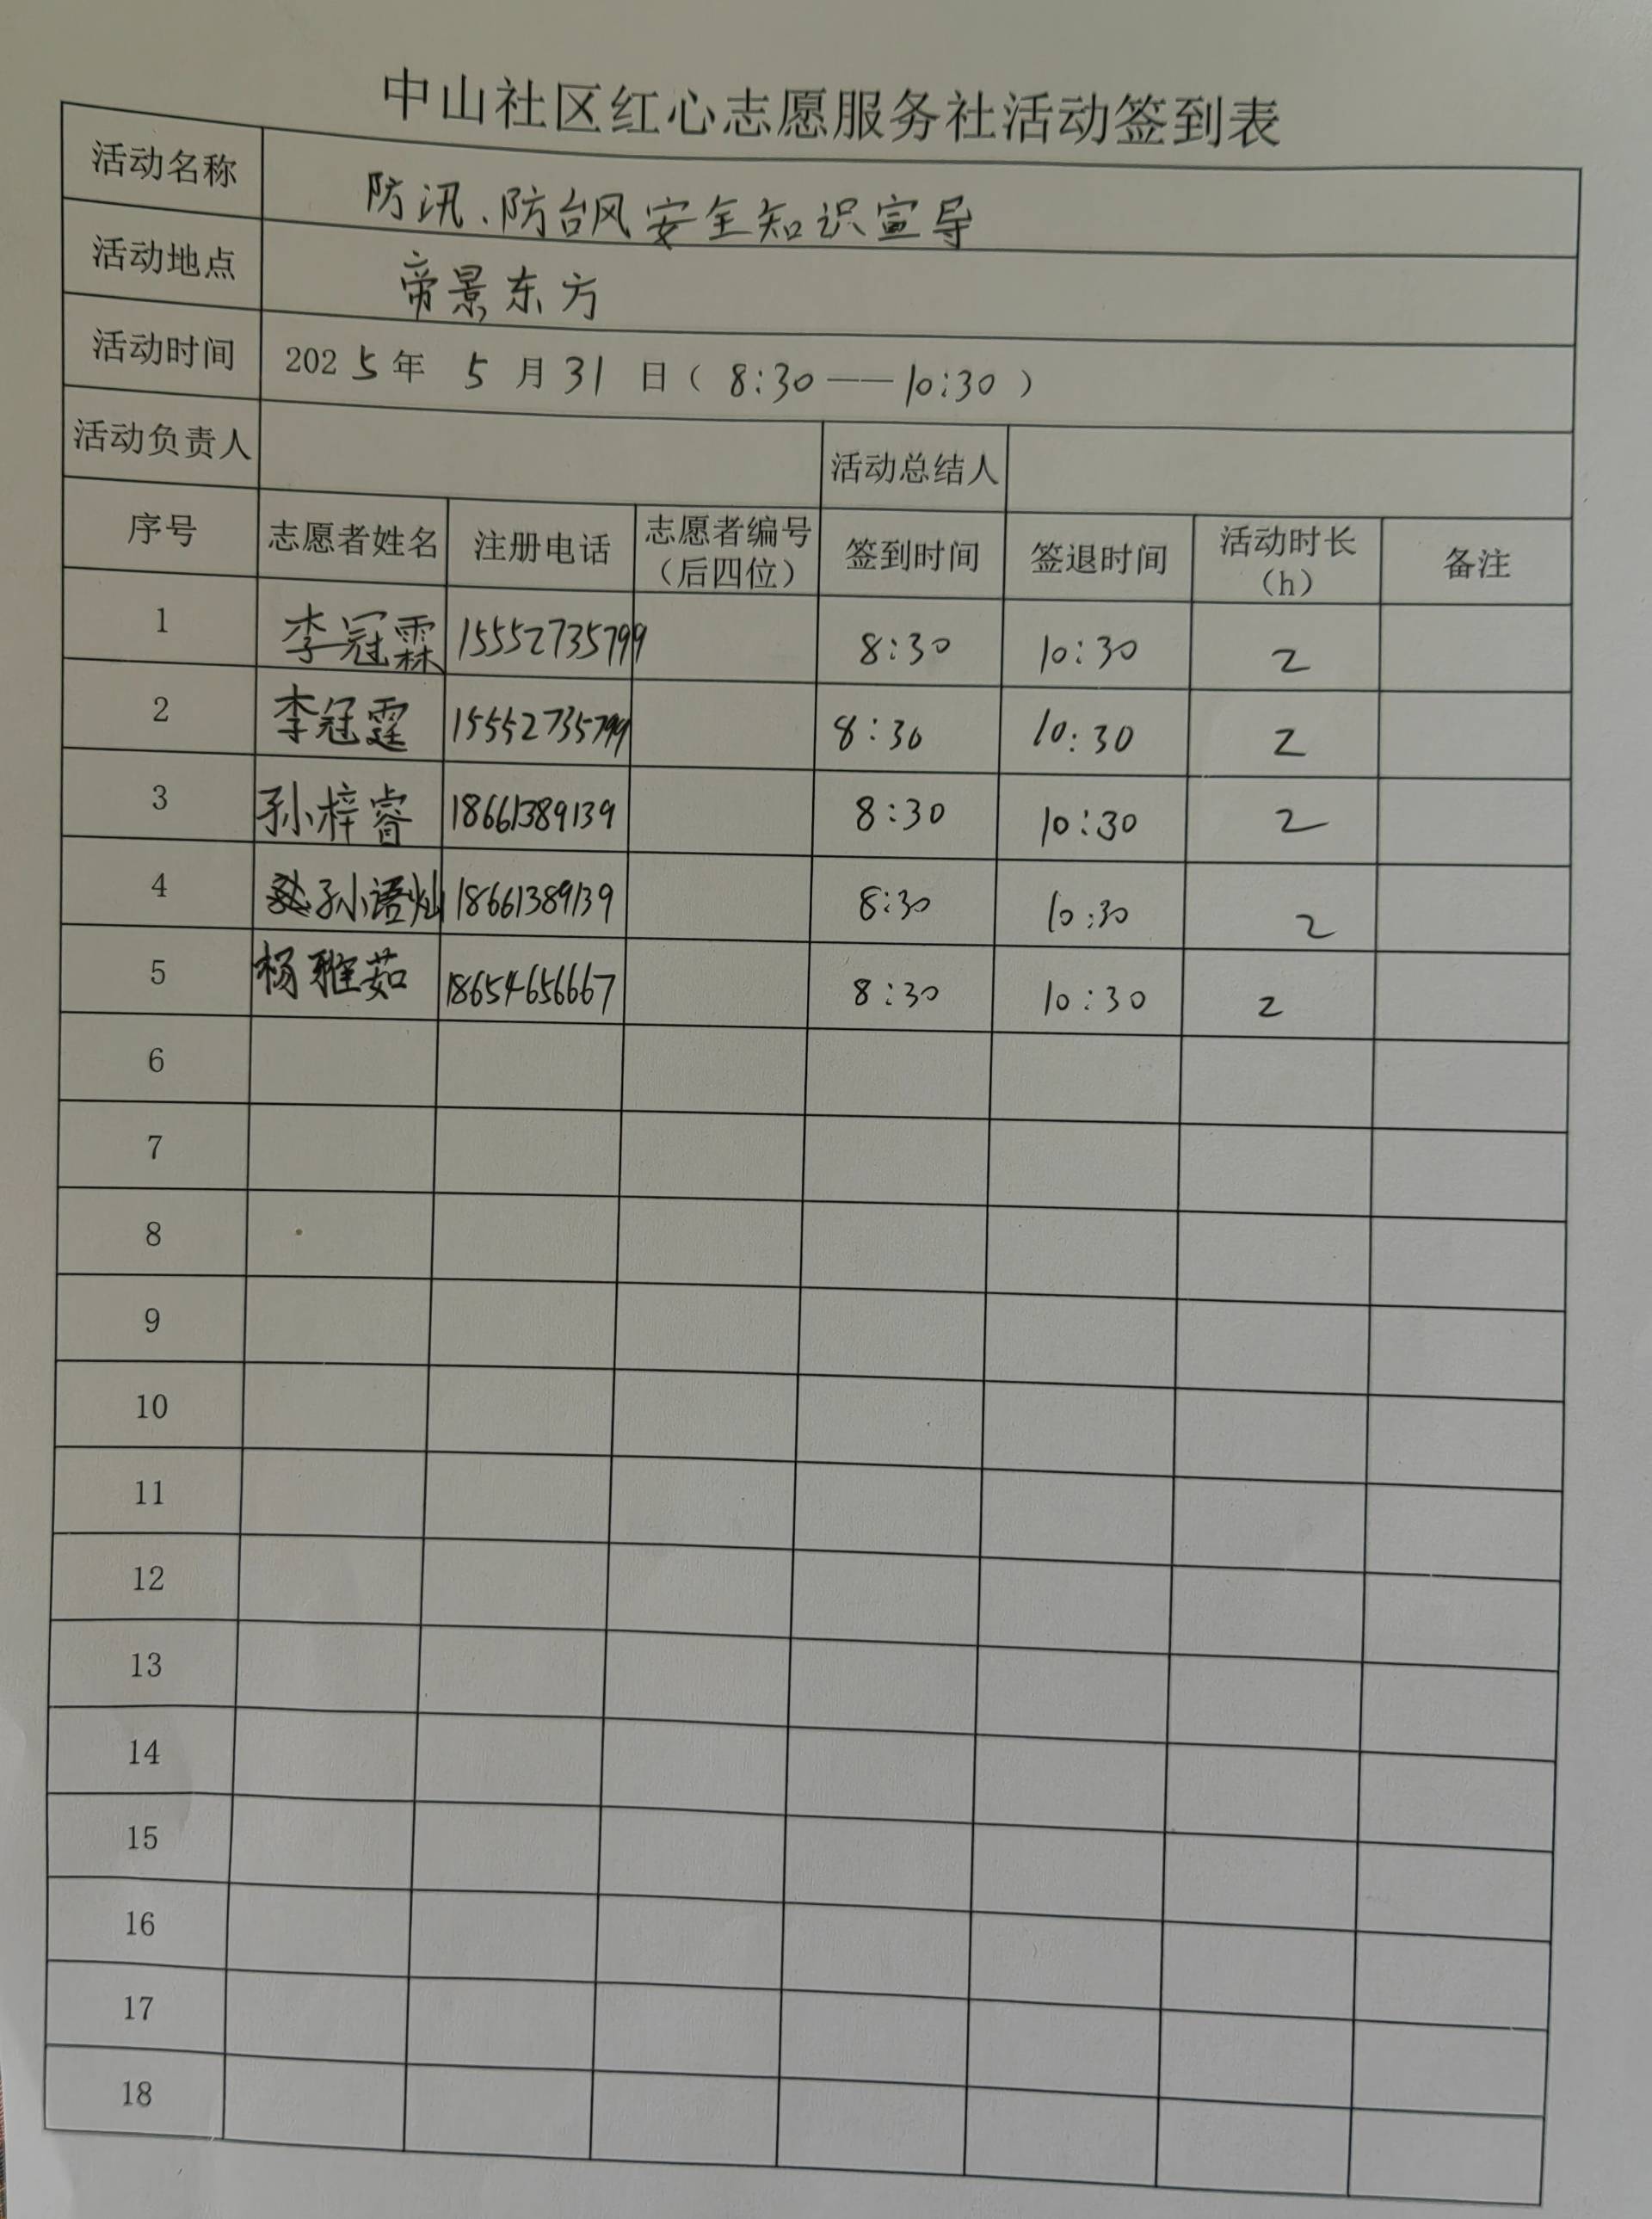 中山社区红心志愿服务社活动签到表
活动名称 防汛、防台风安全知识宣导
活动地点 帝景东方
活动时间 2025年 5月31日(8:30——10:30)
活动负责人 活动总结人
序号 志愿者姓名 注册电话 志愿者编号(后四位) 签到时间 签退时间 活动时长(h) 备注
1 李冠霖 15552735799 8:30 10:30 2
2 李冠霆 15552735799 8:30 10:30 2
3 孙梓睿 18661389139 8:30 10:30 2
4 孙语灿 18661389139 8:30 10:30 2
5 杨雅茹 18654656667 8:30 10:30 2
6
7
8
9
10
11
12
13
14
15
16
17
18